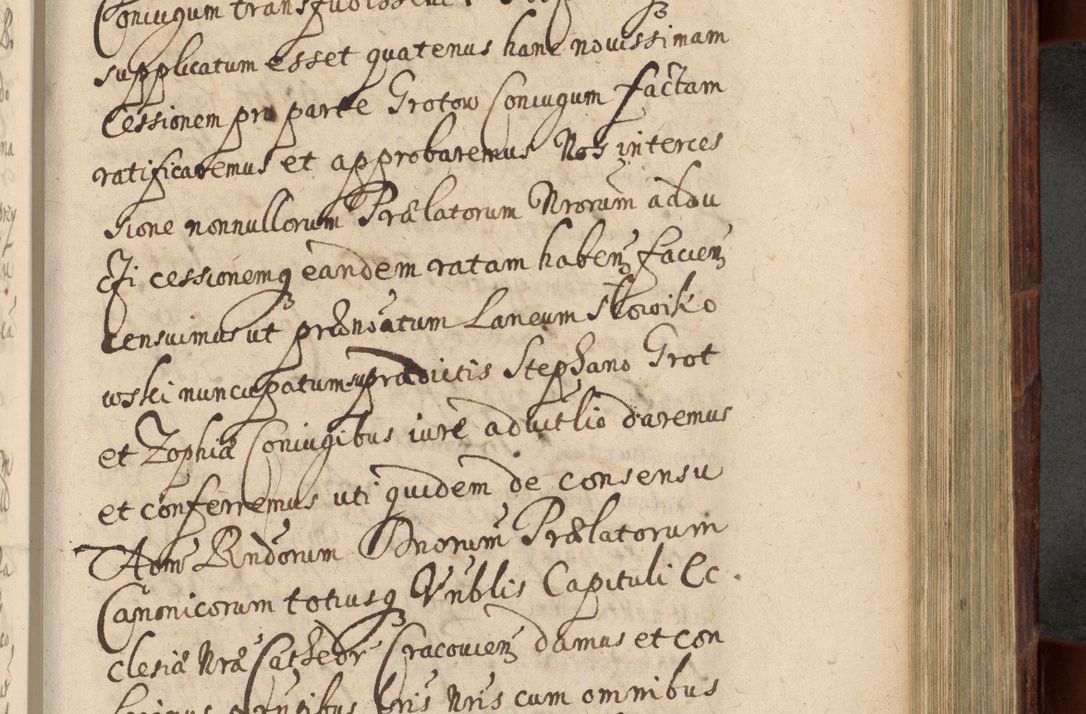 Coniugum transfudissent
supplicatum esset quatenus hanc novissimam
Cessionem pro parte Grotow Coniugum factam
ratificaremus et approbaremus Nos interces
sione nonnullorum Prælatorum Nrorum addu
cti cessionemq eandem ratam haben facien
Censuimus ut prænoatum Laneum Słowiko
wski nuncupatum supradictis Stephano Grot
et Zophiæ Coniugibus iure advitlio daremus
et conferremus uti quidem de consensu
Adm Rndorum Dnorum Prælatorum
Canonicorum totiusq Vnblis Capituli Ec
clesiæ Nræ Cathedr Cracovien damus et con
pntibus Lris Nris cum omnibus